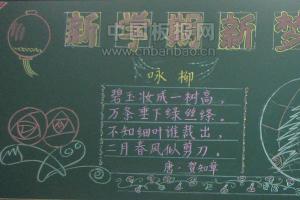 新学期新梦
中国板报网
www.cnbanbao.cn
咏柳
碧玉妆成一树高，
万条垂下绿丝绦。
不知细叶谁裁出，
二月春风似剪刀。
唐·贺知章